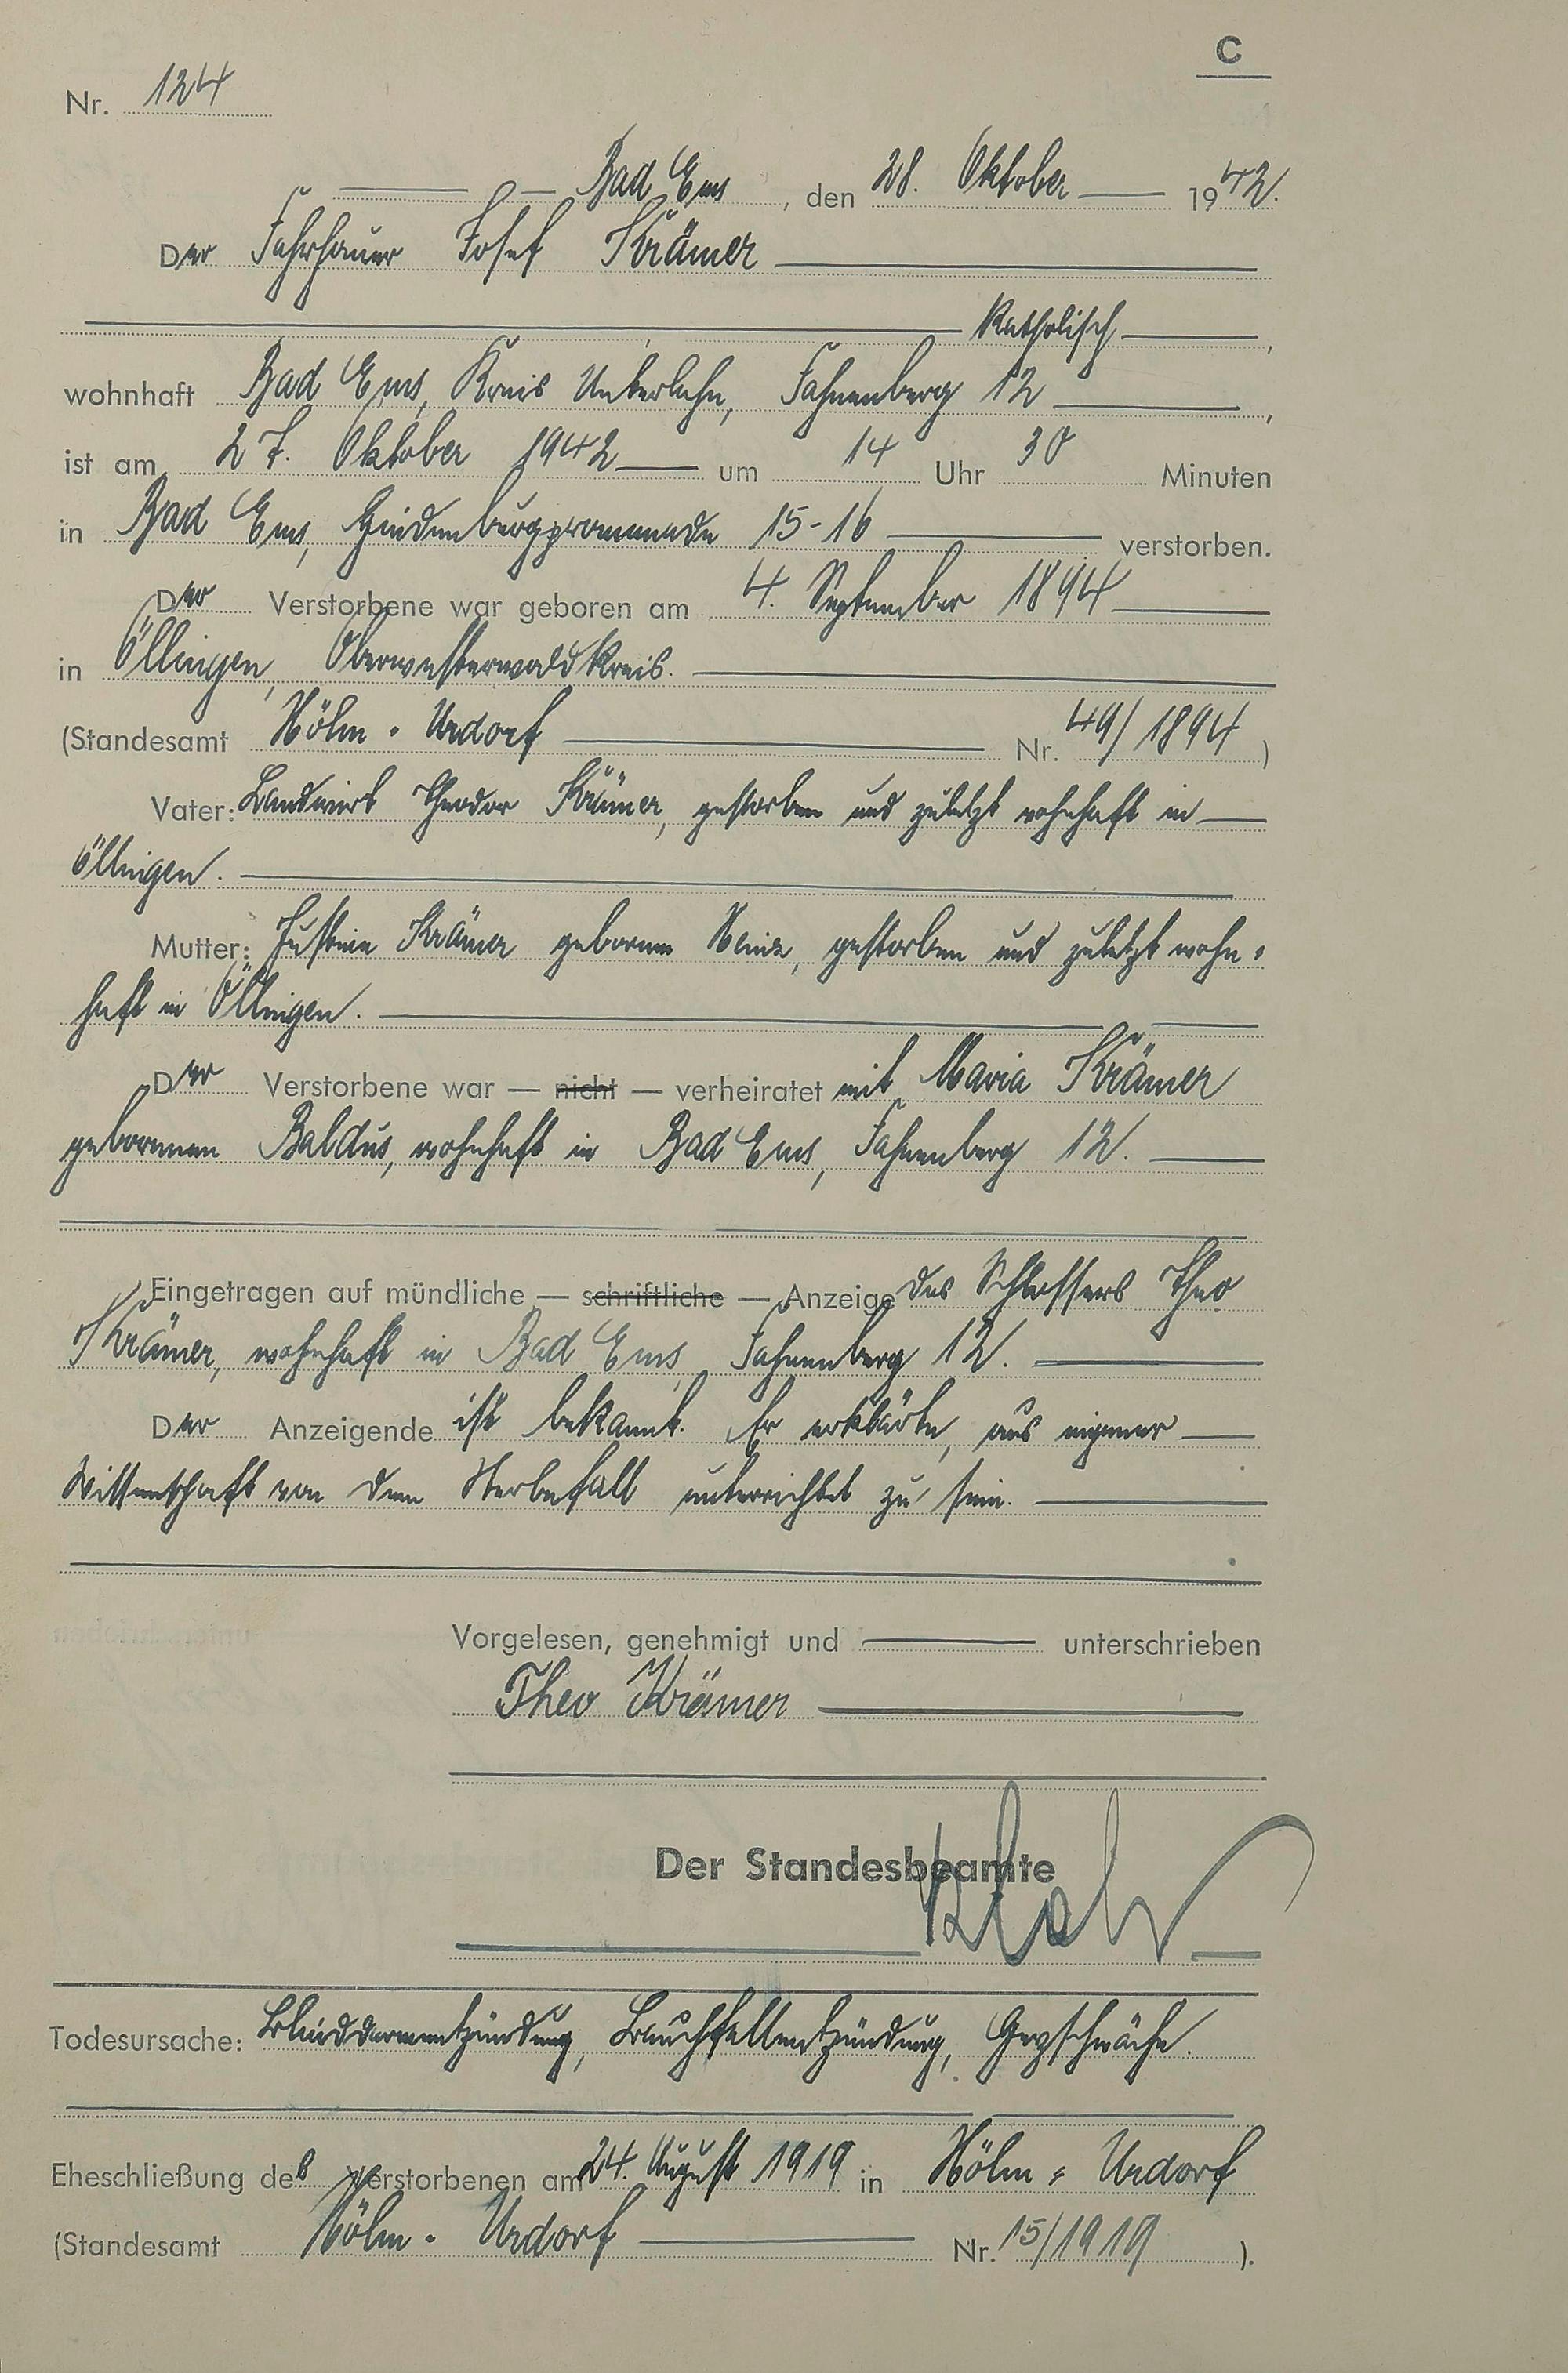 C
Nr. 124
Bad Ems, den 28. Oktober 1942.
Der Fahrhauer Josef Krämer
katholisch,
wohnhaft Bad Ems, Kreis Unterlahn, Fahnenberg 12,
ist am 27. Oktober 1942 um 14 Uhr 30 Minuten
in Bad Ems, Hindenburgpromenade 15-16 verstorben.
Der Verstorbene war geboren am 4. September 1894
in Öllingen, Oberwesterwaldkreis.
(Standesamt Höhn-Urdorf Nr. 49/1894)
Vater: Landwirt Theodor Krämer, gestorben und zuletzt wohnhaft in
Öllingen.
Mutter: Justine Krämer geborene Steine, gestorben und zuletzt wohn=
haft in Öllingen.
Der Verstorbene war — nicht — verheiratet mit Maria Krämer
geborenen Baldus, wohnhaft in Bad Ems, Fahnenberg 12.
Eingetragen auf mündliche — schriftliche — Anzeige des Schlossers Theo
Krämer, wohnhaft in Bad Ems, Fahnenberg 12.
Der Anzeigende ist bekannt. Er erklärte, aus eigener
Wissenschaft von dem Sterbefall unterrichtet zu sein.
Vorgelesen, genehmigt und unterschrieben
Theo Krämer
Der Standesbeamte
Todesursache: Blinddarmentzündung, Bauchfellentzündung, Herzschwäche.
Eheschließung des Verstorbenen am 24. August 1919 in Höhn=Urdorf
(Standesamt Höhn-Urdorf Nr. 15/1919).